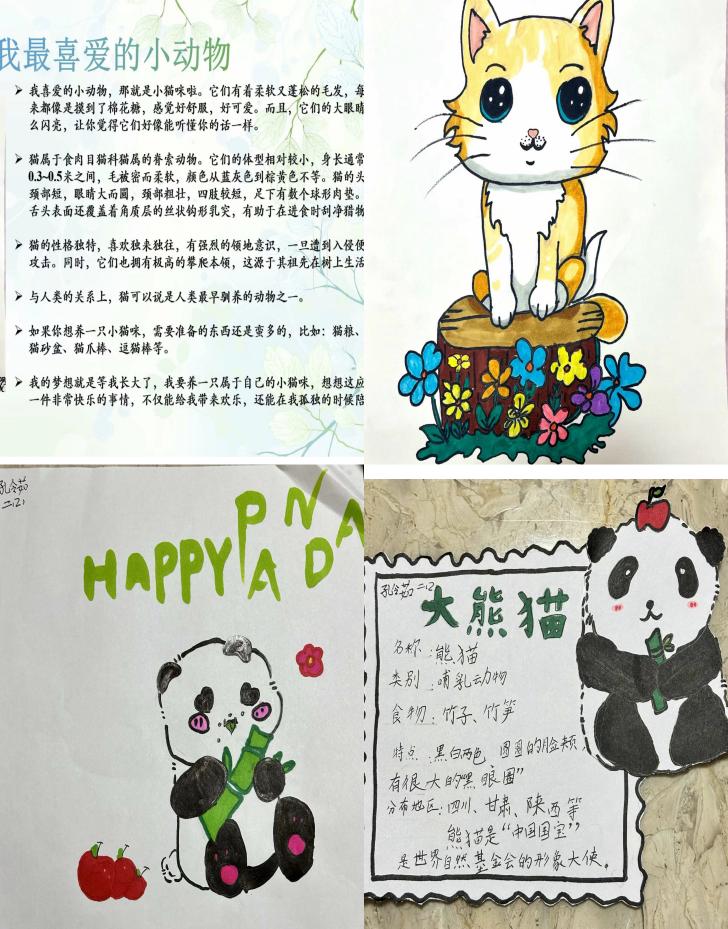 我最喜爱的小动物
我喜爱的小动物，那就是小猫咪啦。它们有着柔软又蓬松的毛发，每
来都像是摸到了棉花糖，感觉好舒服，好可爱。而且，它们的大眼睛
么闪亮，让你觉得它们好像能听懂你的话一样。
猫属于食肉目猫科猫属的脊索动物。它们的体型相对较小，身长通常
0.3~0.5米之间，毛被密而柔软，颜色从蓝灰色到棕黄色不等。猫的头
颈部短，眼睛大而圆，颈部粗壮，四肢较短，足下有数个球形肉垫。
舌头表面还覆盖着角质层的丝状钩形乳突，有助于在进食时刮净猎物
猫的性格独特，喜欢独来独往，有强烈的领地意识，一旦遭到入侵便
攻击。同时，它们也拥有极高的攀爬本领，这源于其祖先在树上生活
与人类的关系上，猫可以说是人类最早驯养的动物之一。
如果你想养一只小猫咪，需要准备的东西还是蛮多的，比如：猫粮、
猫砂盆、猫爪棒、逗猫棒等。
我的梦想就是等我长大了，我要养一只属于自己的小猫咪，想想这应
一件非常快乐的事情，不仅能给我带来欢乐，还能在我孤独的时候陪
孔令茹
二.12
HAPPY PANDA
孔令茹 二.12
大熊猫
名称：熊猫
类别：哺乳动物
食物：竹子、竹笋
特点：黑白两色 圆圆的脸颊，
有很大的“黑眼圈”
分布地区：四川、甘肃、陕西等
熊猫是“中国国宝”
是世界自然基金会的形象大使。